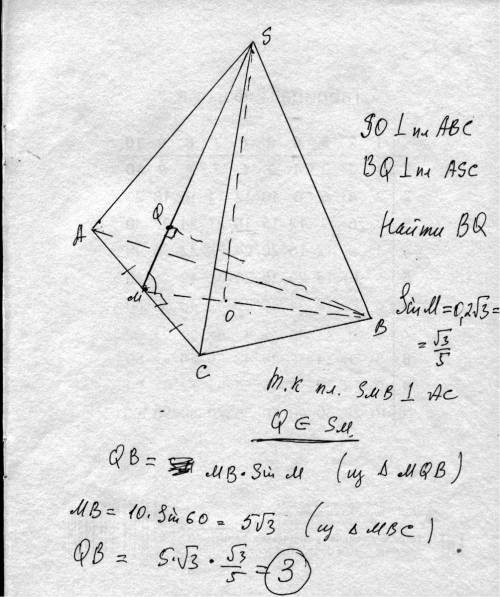 S
SO ⊥ пл ABC
BQ ⊥ пл ASC
Найти BQ
Q
A
M
O
B
C
Sin M = 0,2√3 =
= √3/5
Т.к пл. SMB ⊥ AC
Q ∈ SM
QB = MB · Sin M (из Δ MQB)
MB = 10 · Sin 60 = 5√3 (из Δ MBC)
QB = 5·√3 · √3/5 = 3